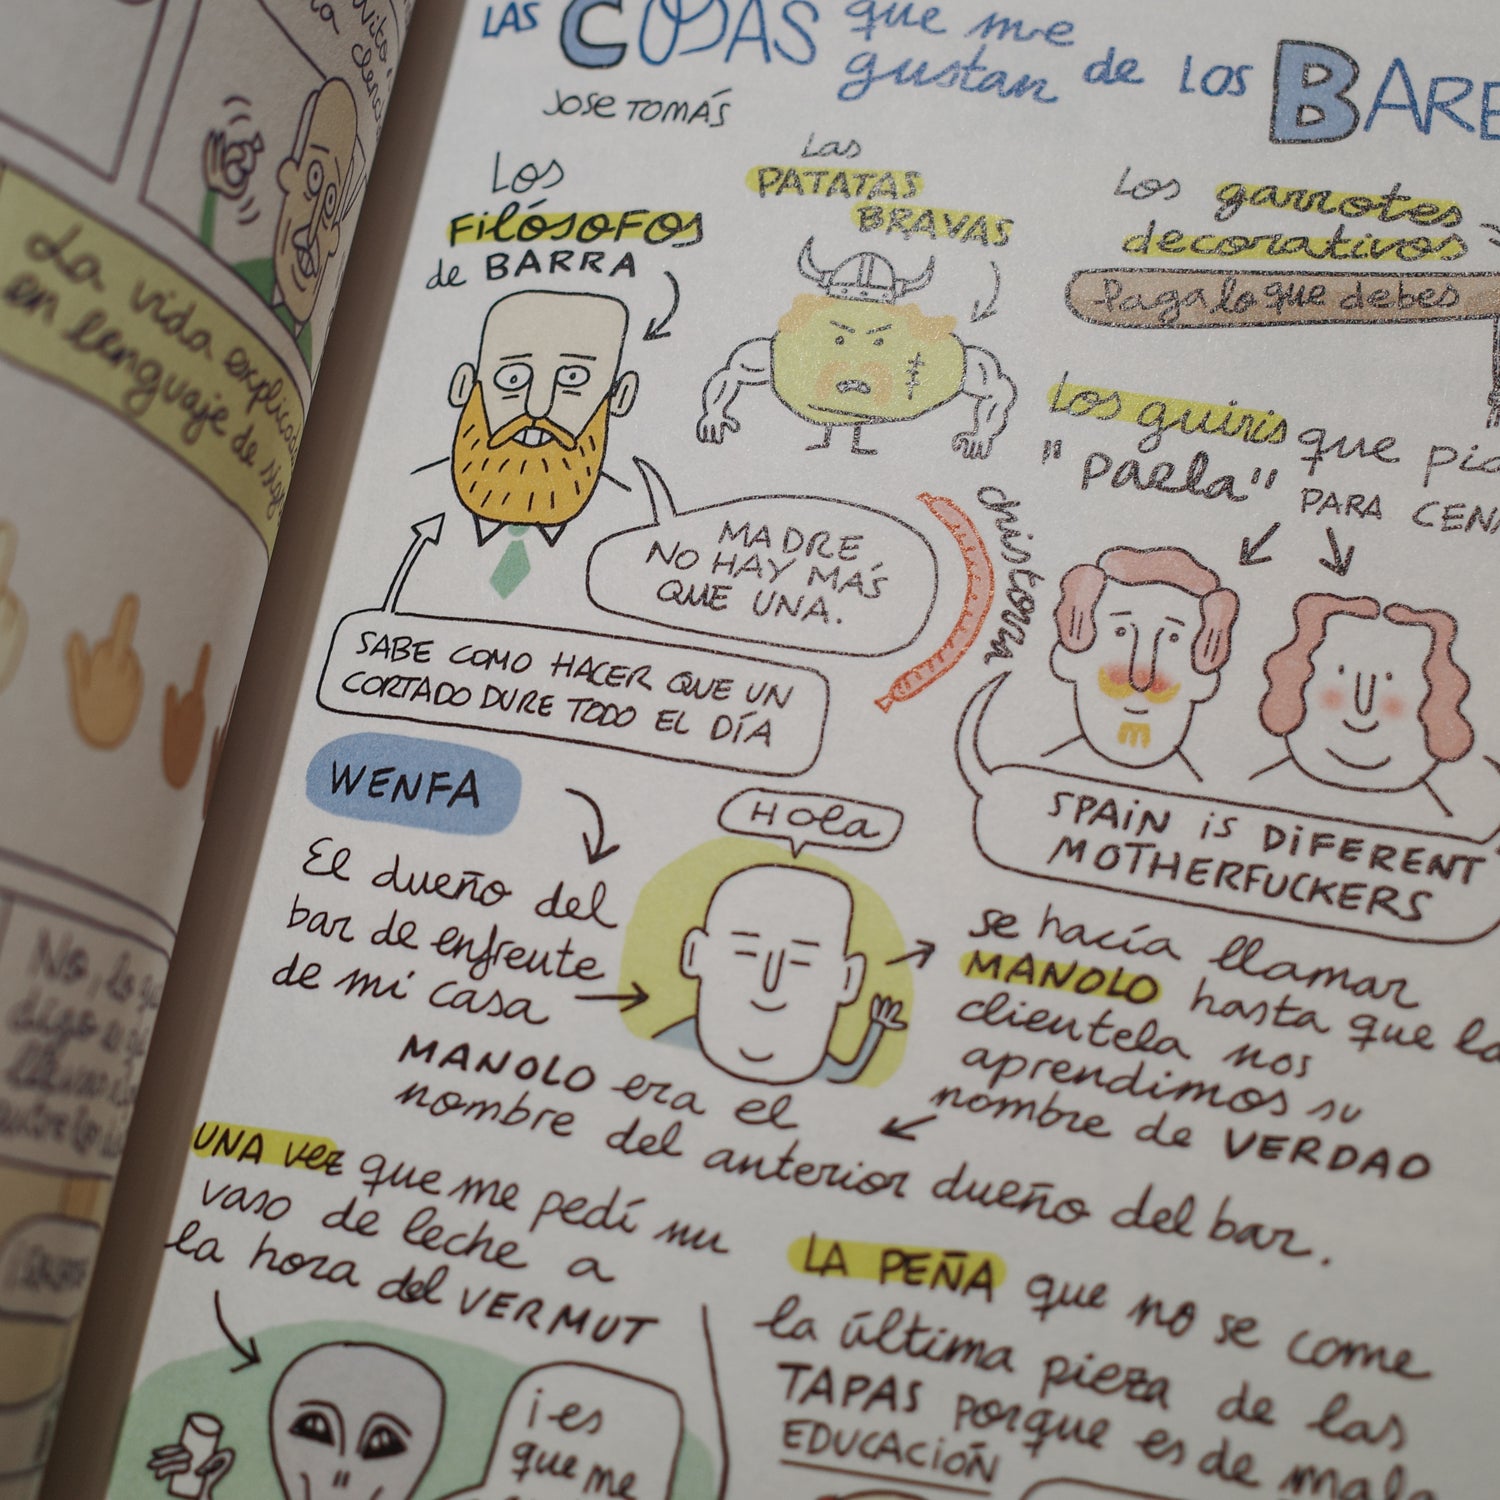 LAS COSAS que me
gustan de los BARE
JOSE TOMÁS
Los
FILÓSOFOS
de BARRA
Las
PATATAS
BRAVAS
Los garrotes
decorativos
Paga lo que debes
Los guiris que
"paela"
PARA
chistorra
MADRE
NO HAY MÁS
QUE UNA.
SABE COMO HACER QUE UN
CORTADO DURE TODO EL DÍA
SPAIN iS DiFERENT
MOTHERFUCKERS
WENFA
Hola
El dueño del
bar de enfrente
de mi casa
se hacía llamar
MANOLO hasta que la
clientela nos
aprendimos su
nombre de VERDAD
MANOLO era el
nombre del anterior dueño del bar.
UNA vez que me pedí un
vaso de leche a
la hora del VERMUT
¡es
que me
LA PEÑA que no se come
la última pieza de las
TAPAS porque es de mala
EDUCACIÓN
La vida
en lenguaje de
No, lo
digo